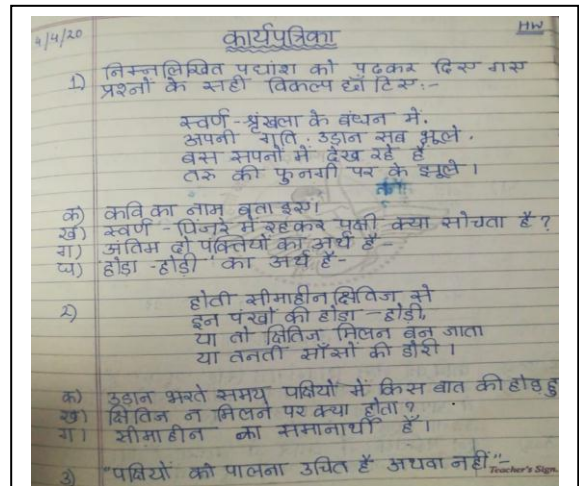 4/4/20
कार्यपत्रिका
HW
1) निम्नलिखित पद्यांश को पढ़कर दिए गए
प्रश्नों के सही विकल्प छाँटिए:-
स्वर्ण-श्रृंखला के बंधन में,
अपनी गति, उड़ान सब भूले,
बस सपनों में देख रहे हैं
तरु की फुनगी पर के झूले।
क) कवि का नाम बताइए।
ख) स्वर्ण-पिंजरे में रहकर पक्षी क्या सोचता है?
ग) अंतिम दो पंक्तियों का अर्थ है-
घ) होड़ा-होड़ी का अर्थ है-
2) होती सीमाहीन क्षितिज से
इन पंखों की होड़ा-होड़ी,
या तो क्षितिज मिलन बन जाता
या तनती साँसों की डोरी।
क) उड़ान भरते समय पक्षियों में किस बात की होड़ हु
ख) क्षितिज न मिलने पर क्या होता?
ग) सीमाहीन का समानार्थी है।
3) "पक्षियों को पालना उचित है अथवा नहीं"-
Teacher's Sign.